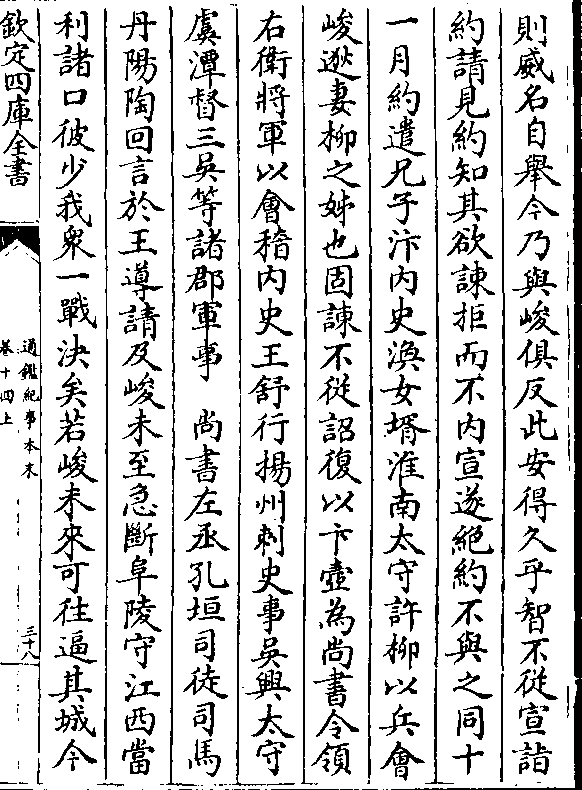 則威名自舉今乃與峻俱反此安得久乎智不從宣詣
約請見約知其欲諫拒而不内宣遂絶約不與之同十
一月約遣兄子沛内史渙女壻淮南太守許柳以兵會
峻逖妻柳之姊也固諫不從詔復以卞壼為尚書令領
右衛將軍以會稽内史王舒行揚州刺史事吳興太守
虞潭督三吳等諸郡軍事　尚書左丞孔坦司徒司馬
丹陽陶回言於王導請及峻未至急斷阜陵守江西當
利諸口彼少我衆一戰決矣若峻未來可往逼其城今
欽定四庫全書
通鑑紀事本末
卷十四上
三十八